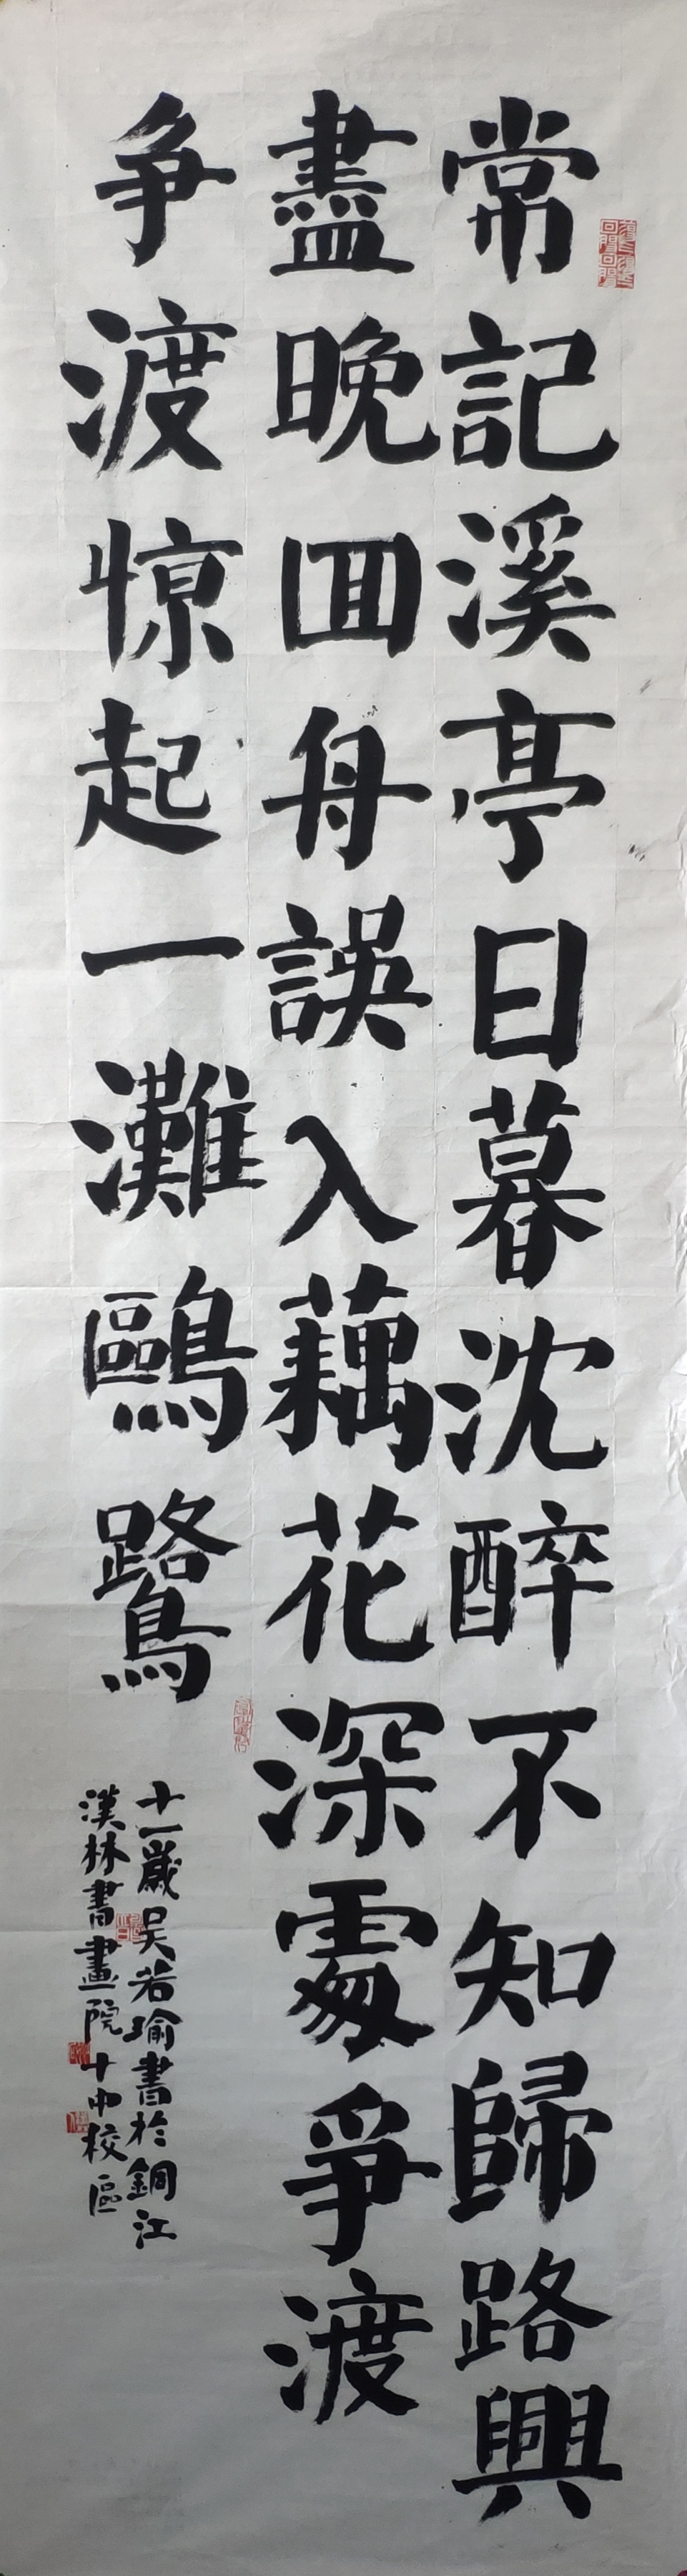 常記溪亭日暮沈醉不知歸路興
盡晚回舟誤入藕花深處爭渡
爭渡惊起一灘鷗鷺
十一歲吴若瑜書於銅江
漢林書畫院十中校區